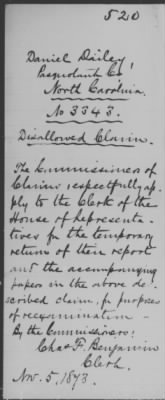 520
Daniel Dailey,
Pasquotank Co,
North Carolina.
No 3343.
Disallowed Claim.
The Commissioners of
Claims respectfully ap-
ply to the Clerk of the
House of Representa-
tives for the temporary
return of their report
and the accompanying
papers in the above de-
scribed claim, for purposes
of reexamination -
By the Commissioners:
Chas F. Benjamin
Clerk.
Nov. 5, 1873.